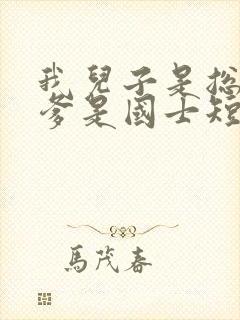 我兒子是總
爹是國士短
馬茂春